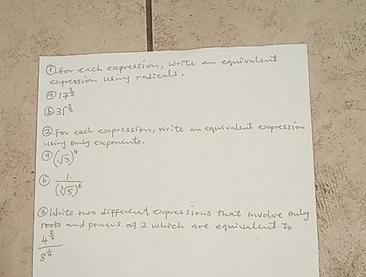 ① For each expression, write an equivalent
expression using radicals.
ⓐ 17
ⓑ 31
② For each expression, write an equivalent expression
using only exponents.
ⓐ (√3)⁴
ⓑ 1
③ Write two different expressions that involve only
roots and powers of 2 which are equivalent to
4
8